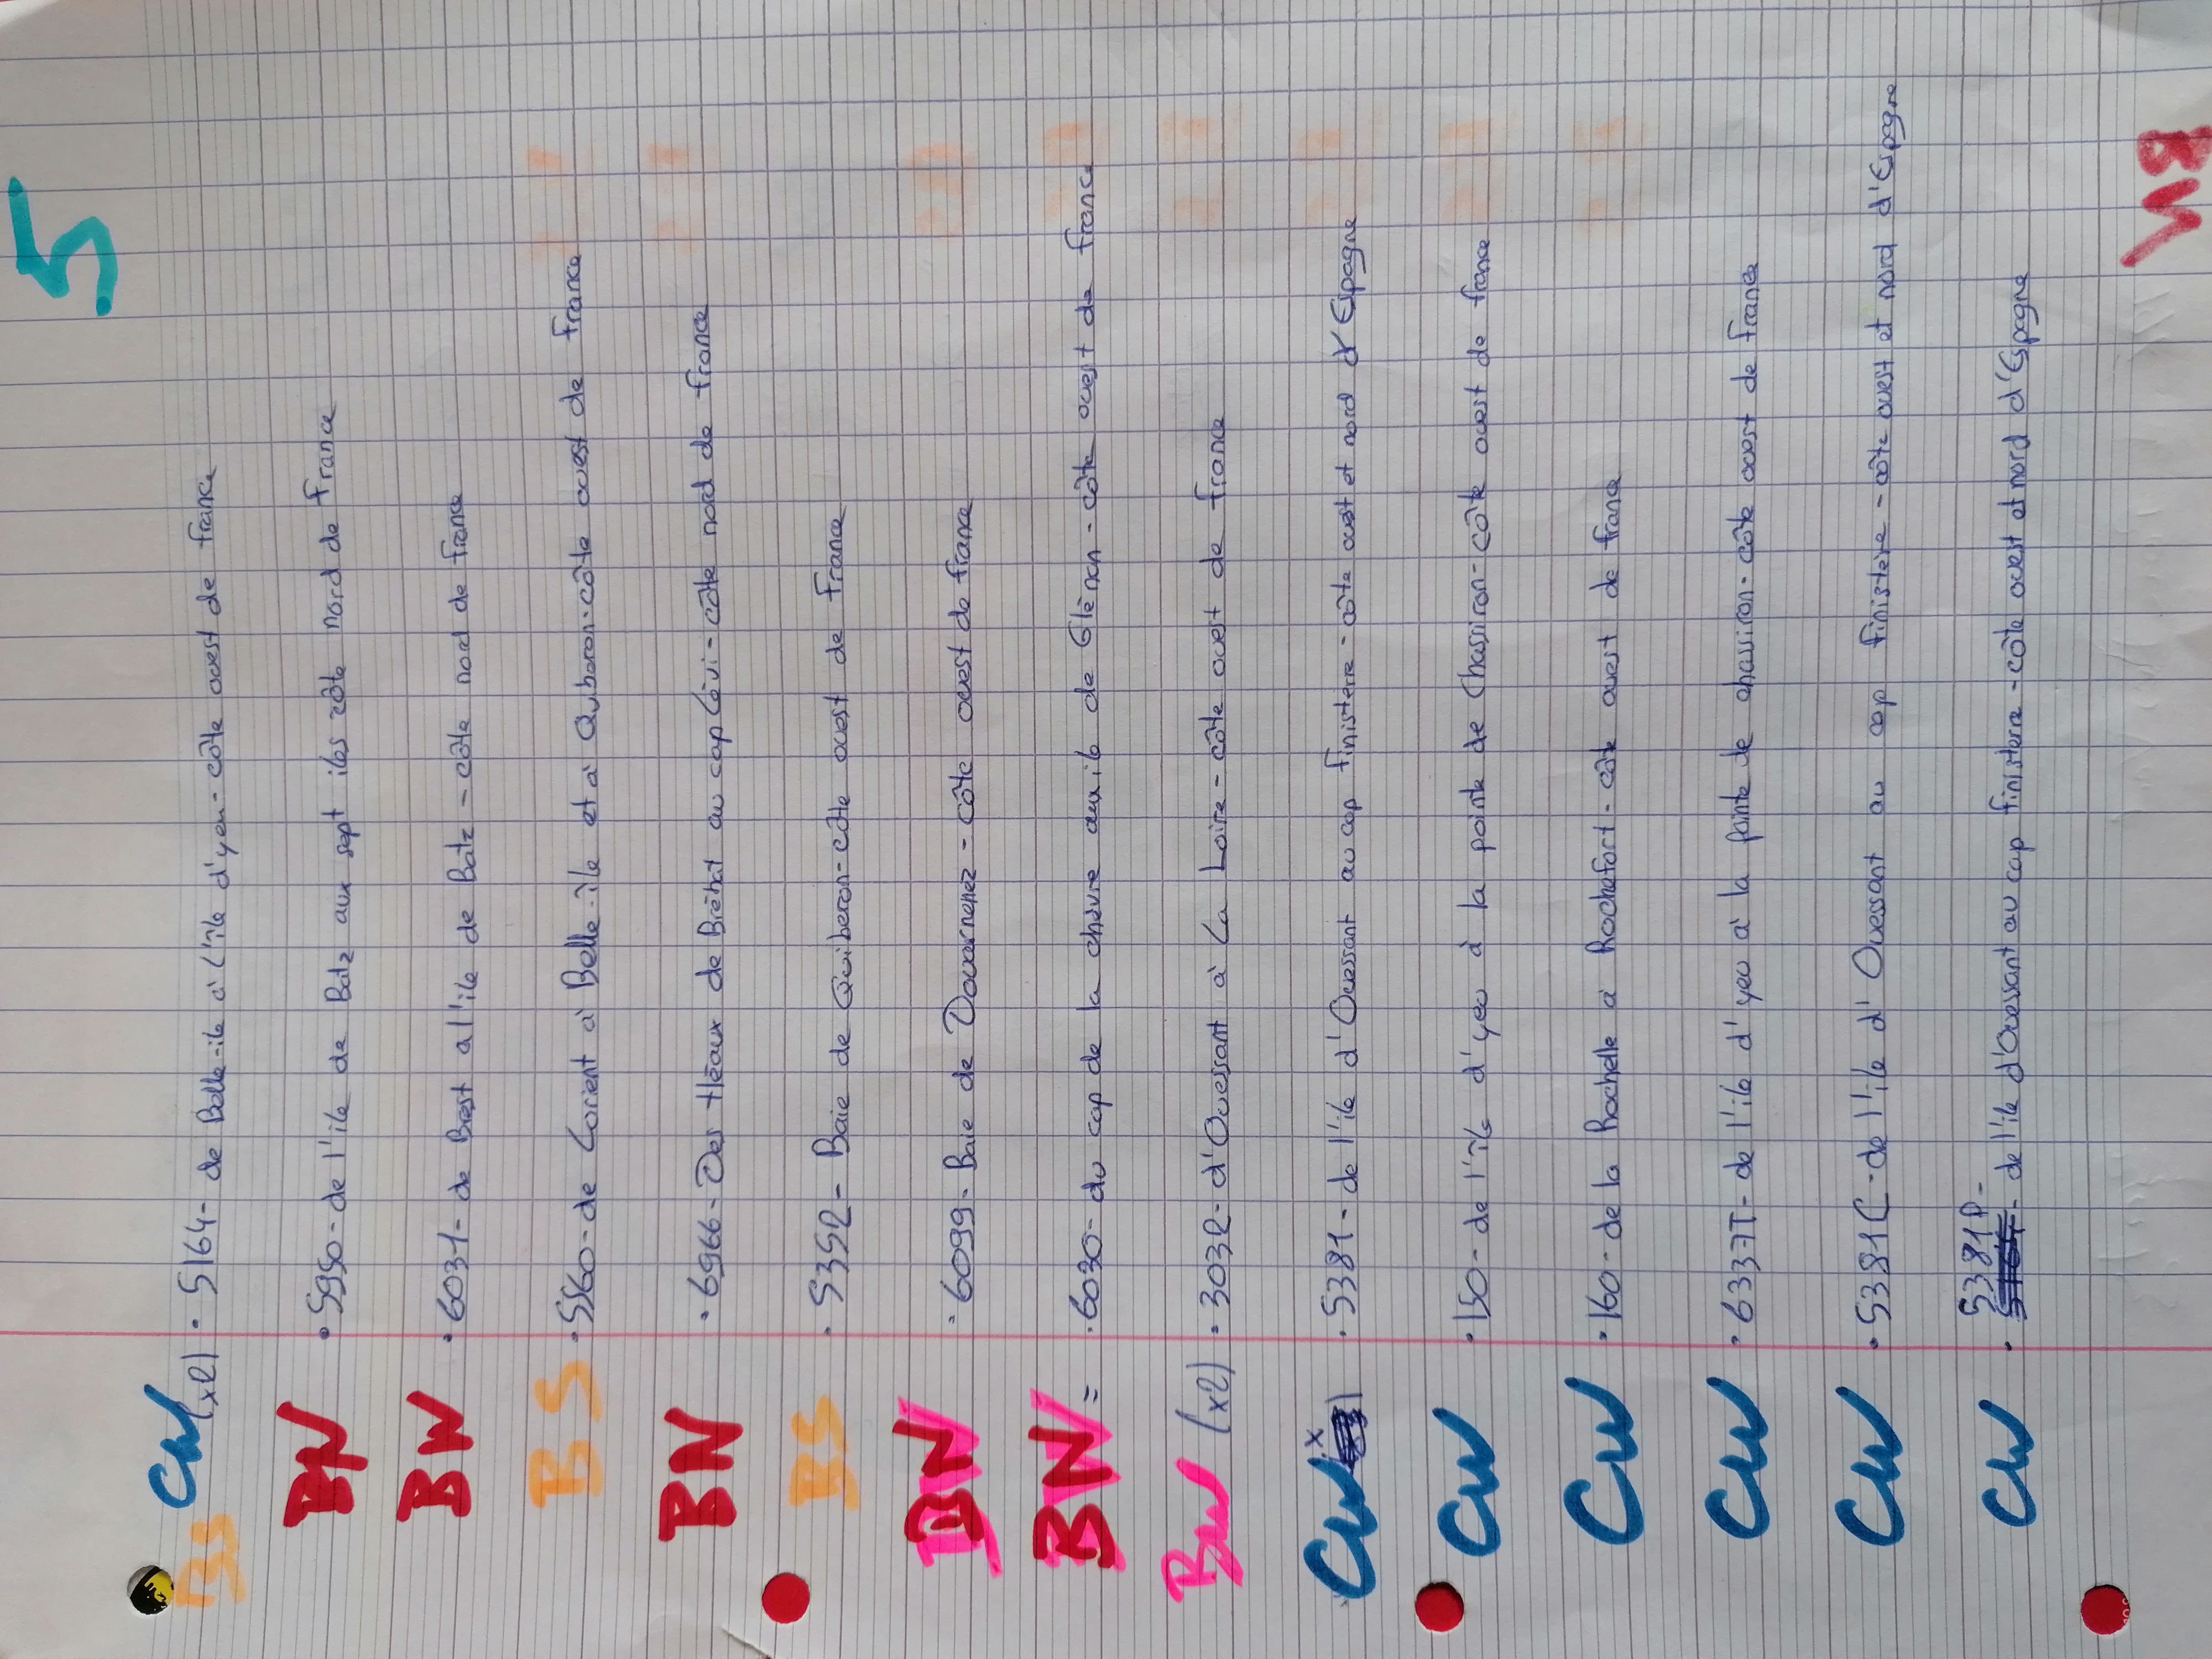 5
BS CW (x2) • 5164 - de Belle-ile à l'île d'yeu - côte ouest de france
BN • 5950 - de l'ile de Batz aux sept iles côte nord de france
BN • 6031 - de Brest a l'ile de Batz - côte nord de france
BS • 5560 - de Lorient à Belle-île et à Quberon - côte ouest de france
BN • 6966 - Des Héaux de Bréhat au cap Lévi - côte nord de france
BS • 5352 - Baie de Quiberon - côte ouest de France
BN • 6099 - Baie de Douarnenez - côte ouest de france
BN = • 6030 - du cap de la chèvre auxile de Glénan - côte ouest de france
BW (x2) • 3032 - d'Ouessant à La Loire - côte ouest de france
CW x • 5381 - de l'ile d'Ouessant au cap finisterre - côte ouest et nord d'Espagne
CW • 150 - de l'île d'yeu à la pointe de Chassiron - côte ouest de france
CW • 160 - de la Rochelle a Rochefort - côte ouest de france
CW • 6337T - de l'ile d'yeu à la pointe de chassiron - côte ouest de france
CW • 5381C - de l'ile d'Ouessant au cap finistere - côte ouest et nord d'Espagne
CW • 5381P - de l'ile d'Ouessant au cap finisterre - côte ouest et nord d'Espagne